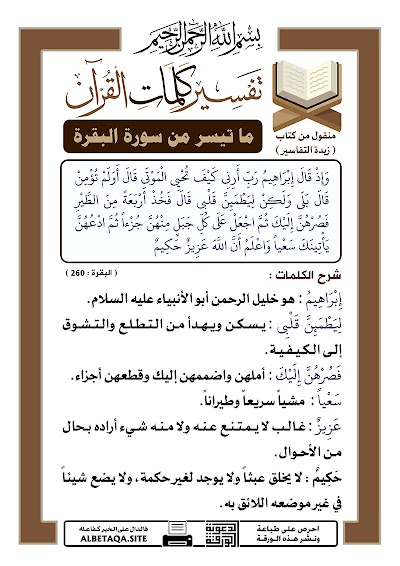 بسم الله الرحمن الرحيم
تفسير كلمات القرآن
منقول من كتاب
( زبدة التفاسير )
ما تيسر من سورة البقرة
وَإِذْ قَالَ إِبْرَاهِيمُ رَبِّ أَرِنِي كَيْفَ تُحْيِي الْمَوْتَى قَالَ أَوَلَمْ تُؤْمِنْ
قَالَ بَلَى وَلَكِنْ لِيَطْمَئِنَّ قَلْبِي قَالَ فَخُذْ أَرْبَعَةً مِنَ الطَّيْرِ
فَصُرْهُنَّ إِلَيْكَ ثُمَّ اجْعَلْ عَلَى كُلِّ جَبَلٍ مِنْهُنَّ جُزْءاً ثُمَّ ادْعُهُنَّ
يَأْتِينَكَ سَعْياً وَاعْلَمْ أَنَّ اللَّهَ عَزِيزٌ حَكِيمٌ
( البقرة : 260 )
شرح الكلمات :
إِبْرَاهِيمُ : هو خليل الرحمن أبو الأنبياء عليه السلام.
لِيَطْمَئِنَّ قَلْبِي : يسكن ويهدأ من التطلع والتشوق
إلى الكيفية.
فَصُرْهُنَّ إِلَيْكَ : أملهن واضممهن إليك وقطعهن أجزاء.
سَعْياً : مشياً سريعاً وطيراناً.
عَزِيزٌ : غالب لا يمتنع عنه ولا منه شيء أراده بحال
من الأحوال.
حَكِيمٌ : لا يخلق عبثاً ولا يوجد لغير حكمة، ولا يضع شيئاً
في غير موضعه اللائق به.
احرص على طباعة
ونشر هذه الورقة
الدعوية
الورقة
فالدال على الخير كفاعله
ALBETAQA.SITE